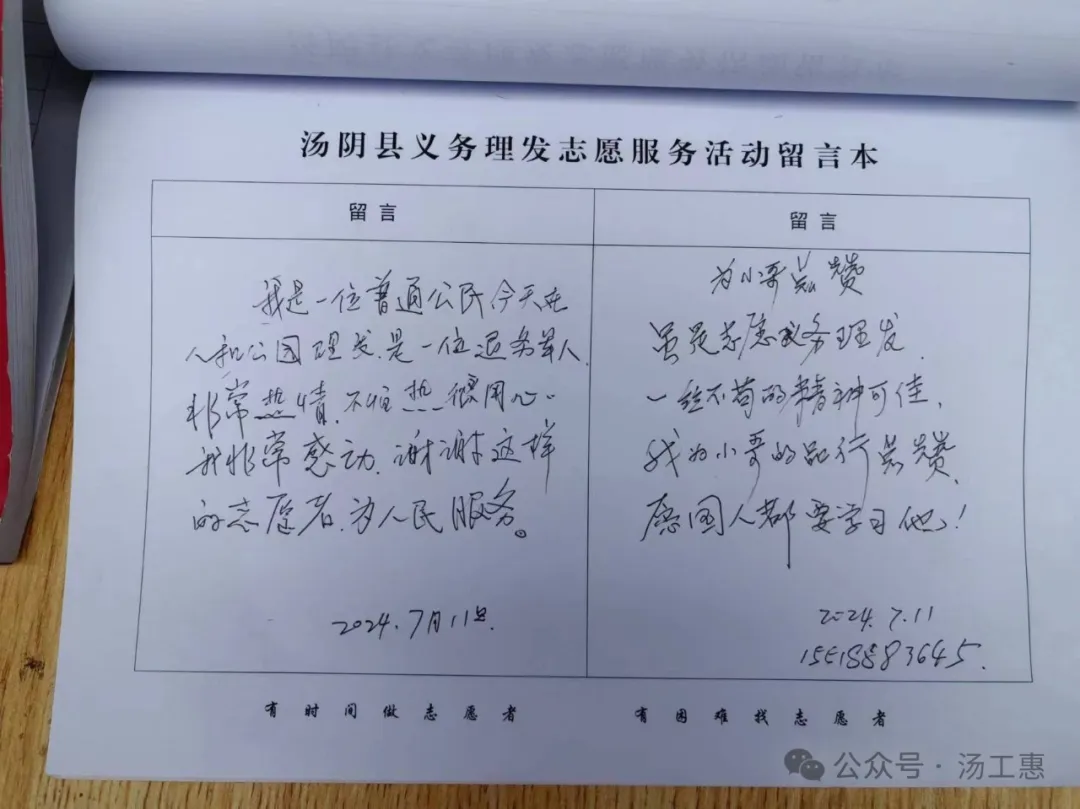 汤阴县义务理发志愿服务活动留言本
留言
我是一位普通公民今天在
人和公园理发.是一位退务军人.
非常热情.不怕热.很用心.
我非常感动.谢谢这样
的志愿者.为人民服务。
2024.7月11日.
留言
为小哥点赞
虽是志愿义务理发.
一丝不苟的精神可佳,
我为小哥的品行点赞,
愿国人都要学习他!
2024.7.11
有时间做志愿者
有困难找志愿者
公众号·汤工惠